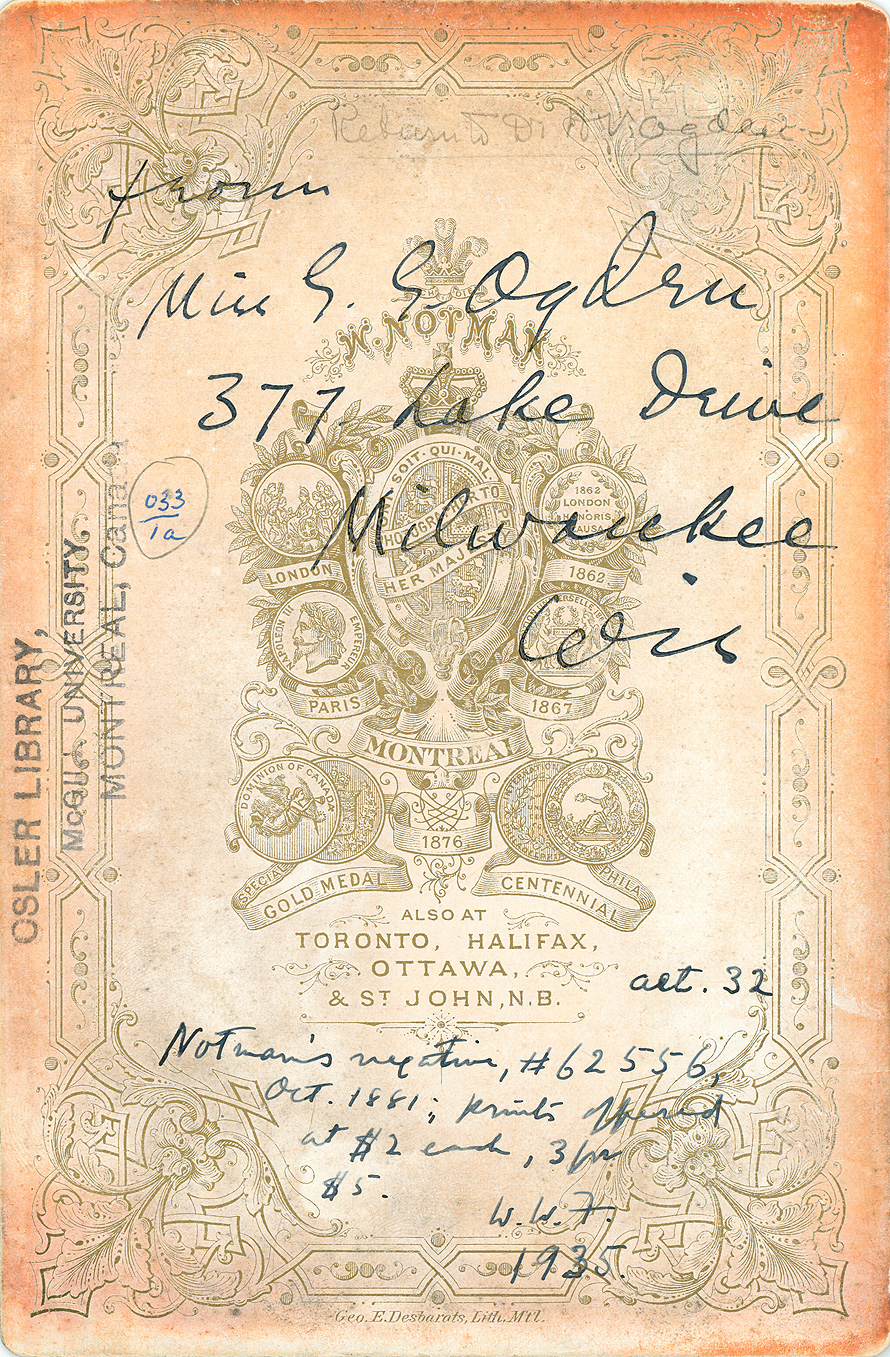 Return to Dr H V Ogden
from
Miss G. G. Ogden
W. NOTMAN
377 Lake Drive
SOIT·QUI·MAL
PHOTOGRAPHER TO
HER MAJESTY
1862
LONDON
HONORIS
CAUSA
Milwaukee
LONDON
1862
033
1a
Wis
NAPOLEON III EMPEREUR
PARIS
1867
OSLER LIBRARY,
McGILL UNIVERSITY,
MONTREAL, Canada
MONTREAL
DOMINION OF CANADA
1876
SPECIAL
GOLD MEDAL
CENTENNIAL
PHILA
ALSO AT
TORONTO, HALIFAX,
OTTAWA,
& ST JOHN, N.B.
aet. 32
Notman's negative, #62556,
Oct. 1881; prints offered
at $2 each, 3 for
$5.
W.W.F.
1935.
Geo. E. Desbarats, Lith. Mtl.